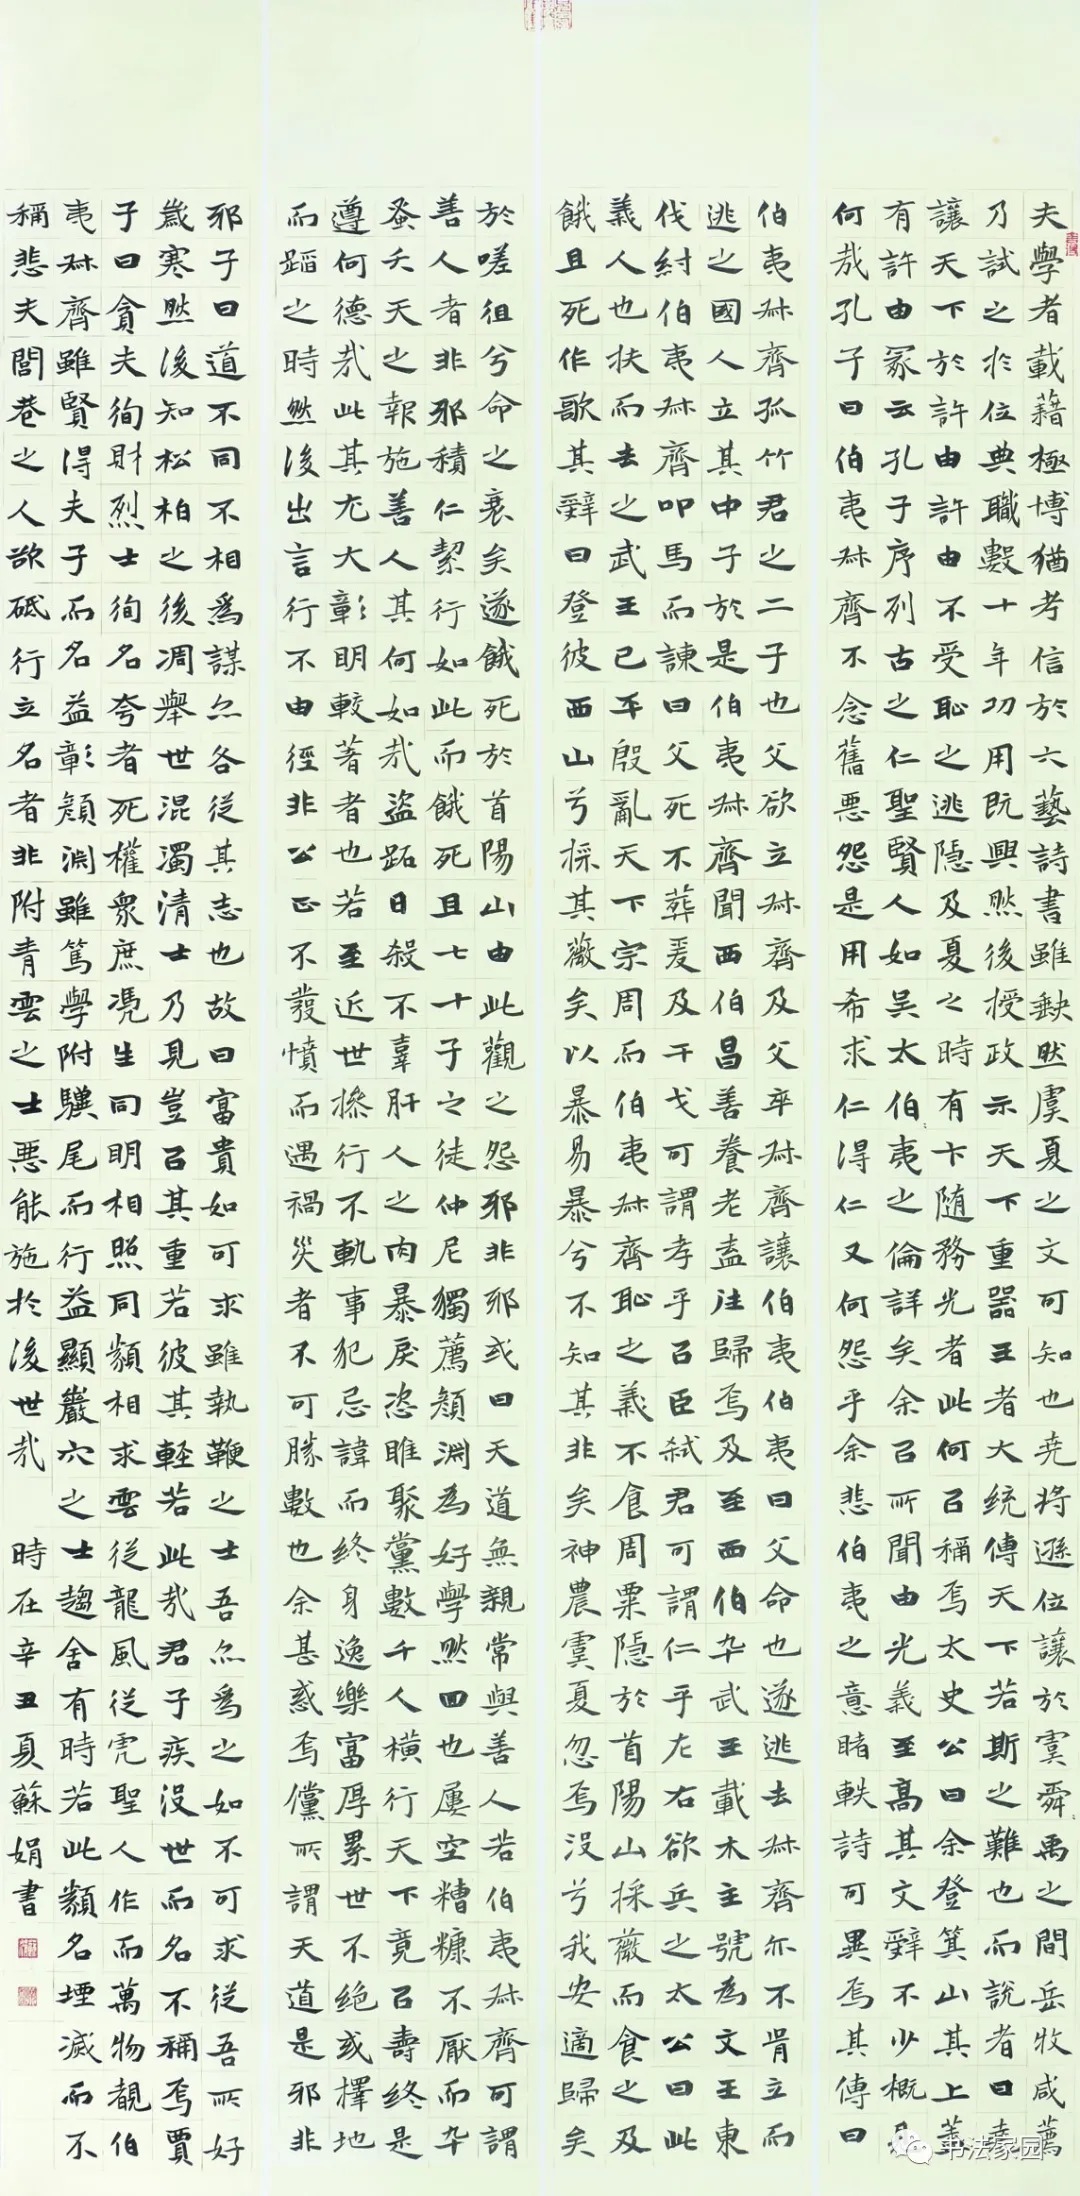 夫學者載藉極博猶考信於六藝詩書雖缺然虞夏之文可知也尭将遜位讓於虞舜禹之間岳牧咸薦
乃試之於位典職數十年功用既興然後授政示天下重器王者大統傳天下若斯之難也而說者曰堯
讓天下於許由許由不受恥之逃隱及夏之時有卞随務光者此何以稱焉太史公曰余登箕山其上蓋
有許由冢云孔子序列古之仁聖賢人如吳太伯夷之倫詳矣余以所聞由光義至高其文辭不少概
何哉孔子曰伯夷叔齊不念舊惡怨是用希求仁得仁又何怨乎余悲伯夷之意睹軼詩可異焉其傳曰
伯夷叔齊孤竹君之二子也父欲立叔齊及父卒叔齊讓伯夷伯夷曰父命也遂逃去叔齊亦不肯立而
逃之國人立其中子於是伯夷叔齊聞西伯昌善養老盍往歸焉及至西伯卒武王載木主號為文王東
伐紂伯夷叔齊叩馬而諫曰父死不葬爰及干戈可謂孝乎以臣弒君可謂仁乎左右欲兵之太公曰此
義人也扶而去之武王已平殷亂天下宗周而伯夷叔齊恥之義不食周粟隱於首陽山採薇而食之及
餓且死作歌其辭曰登彼西山兮採其薇矣以暴易暴兮不知其非矣神農虞夏忽焉没兮我安適歸矣
於嗟徂兮命之衰矣遂餓死於首陽山由此觀之怨邪非邪或曰天道無親常與善人若伯夷叔齊可謂
善人者非邪積仁絜行如此而餓死且七十子之徒仲尼獨薦顏淵為好學然回也屢空糟糠不厭而卒
蚤夭天之報施善人其何如哉盜跖日殺不辜肝人之肉暴戾恣睢聚黨數千人橫行天下竟以壽終是
遵何德哉此其尤大彰明較著者也若至近世操行不軌事犯忌諱而終身逸樂富厚累世不絕或擇地
而蹈之時然後出言行不由徑非公正不發憤而遇禍災者不可勝數也余甚惑焉儻所謂天道是邪非
邪子曰道不同不相為謀亦各從其志也故曰富貴如可求雖執鞭之士吾亦為之如不可求從吾所好
歲寒然後知松柏之後凋舉世混濁清士乃見豈以其重若彼其輕若此哉君子疾没世而名不稱焉賈
子曰貪夫徇財烈士徇名夸者死權眾庶馮生同明相照同類相求雲從龍風從虎聖人作而萬物覩伯
夷叔齊雖賢得夫子而名益彰顏淵雖篤學附驥尾而行益顯巖穴之士趨舍有時若此類名堙滅而不
稱悲夫閭巷之人欲砥行立名者非附青雲之士惡能施於後世哉 時在辛丑夏蘇娟書
书法家园